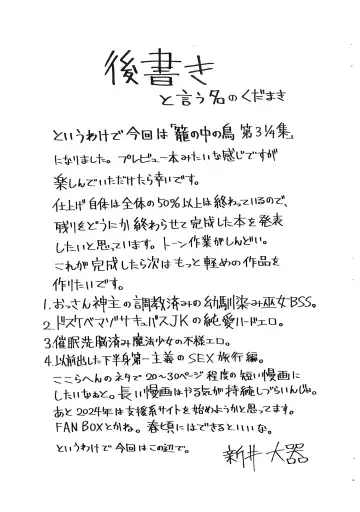 後書き
と言う名のくだまき
というわけで今回は「籠の中の鳥 第3 1/4集」
になりました。プレビュー本みたいな感じですが
楽しんでいただけたら幸いです。
仕上げ自体は全体の50%以上は終わっているので、
残りをどうにか終わらせて完成した本を発表
したいと思っています。トーン作業がしんどい。
これが完成したら次はもっと軽めの作品を
作りたいです。
1.おっさん神主の調教済みの幼馴染み巫女BSS。
2.ドスケベマゾサキュバスJKの純愛ハードエロ。
3.催眠洗脳済み魔法少女の不様エロ。
4.以前出した下半身第一主義のSEX旅行編。
ここらへんのネタで20〜30ページ程度の短い漫画に
したいなぁと。長い漫画はやる気が持続しづらいんじゃ。
あと2024年は支援系サイトを始めようかと思ってます。
FANBOXとかね。春頃にはできるといいな。
というわけで今回はこの辺で。
新井大器